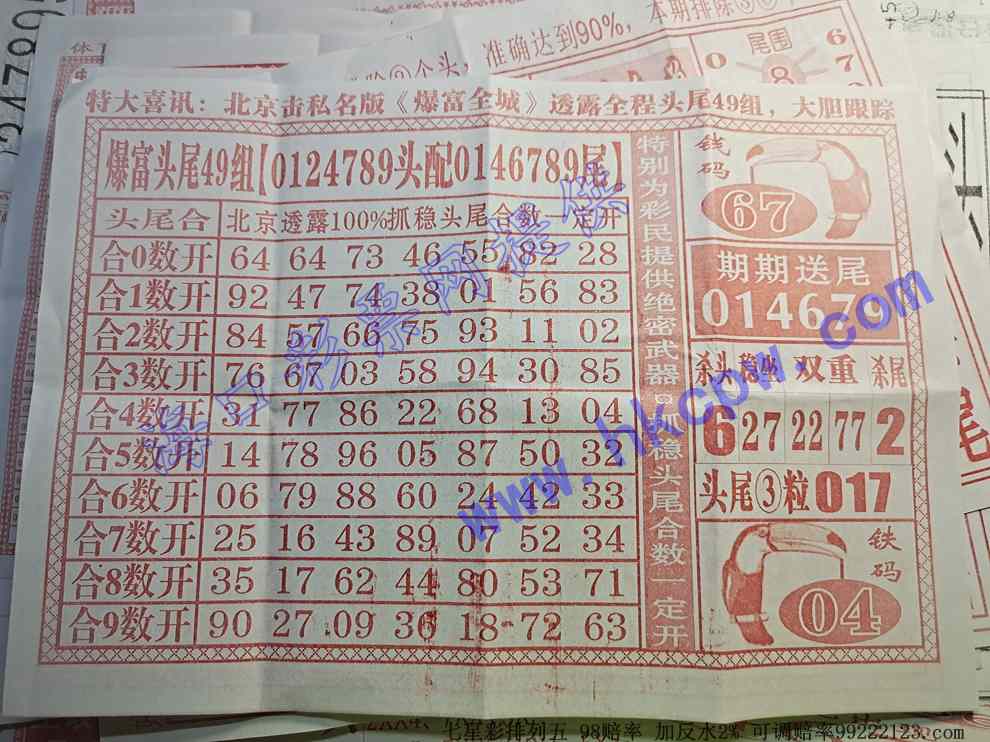 准确达到90%,
本期排除3
尾围
8
特大喜讯：北京击私名版《爆富全城》透露全程头尾49组，大胆跟踪
爆富头尾49组【0124789头配0146789尾】
头尾合 北京透露100%抓稳头尾合数一定开
合0数开 64 64 73 46 55 82 28
合1数开 92 47 74 38 01 56 83
合2数开 84 57 66 75 93 11 02
合3数开 76 67 03 58 94 30 85
合4数开 31 77 86 22 68 13 04
合5数开 14 78 96 05 87 50 32
合6数开 06 79 88 60 24 42 33
合7数开 25 16 43 89 07 52 34
合8数开 35 17 62 44 80 53 71
合9数开 90 27 09 36 18 72 63
特别为彩民提供绝密武器 抓稳头尾合数一定开
钱码
67
期期送尾
0146789
杀头 稳坐 双重 杀尾
6 27 22 77 2
头尾③粒017
铁码
04
www.hkcpw.com
七星彩排列五 98赔率 加反水2% 可调赔率99222123.com